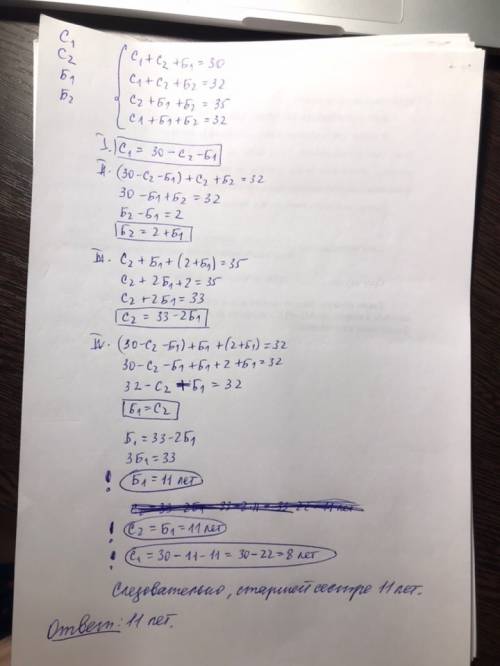 С1
С2
Б1
Б2
С1 + С2 + Б1 = 30
С1 + С2 + Б2 = 32
С2 + Б1 + Б2 = 35
С1 + Б1 + Б2 = 32
I. С1 = 30 - С2 - Б1
II. (30 - С2 - Б1) + С2 + Б2 = 32
30 - Б1 + Б2 = 32
Б2 - Б1 = 2
Б2 = 2 + Б1
III. С2 + Б1 + (2 + Б1) = 35
С2 + 2Б1 + 2 = 35
С2 + 2Б1 = 33
С2 = 33 - 2Б1
IV. (30 - С2 - Б1) + Б1 + (2 + Б1) = 32
30 - С2 - Б1 + Б1 + 2 + Б1 = 32
32 - С2 + Б1 = 32
Б1 = С2
Б1 = 33 - 2Б1
3Б1 = 33
! Б1 = 11 лет
! С2 = Б1 = 11 лет
! С1 = 30 - 11 - 11 = 30 - 22 = 8 лет
Следовательно, старшей сестре 11 лет.
Ответ: 11 лет.